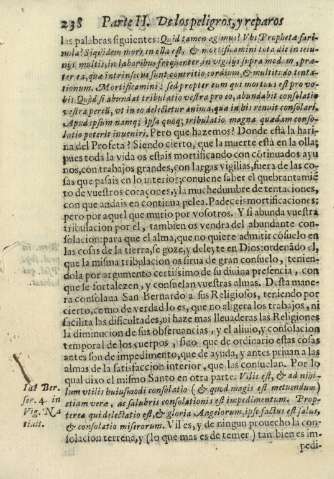 238 Parte II. De los peligros, y reparos
las palabras siguientes: Quid tamen egimus? Vbi Propheta fari-
nula? Siquidem mors in olla est, & mortificamini tota die in ieiu-
nijs multis, in laboribus frequenter in vigilijs supra modum, præ-
ter ea, quæ intrinsecus sunt contritio cordium, & multitudo tenta-
tionum. Mortificamini: sed propter eum qui mortuus est pro vo-
bis. Quod si abundat tribulatio vestra pro eo, abundabit consolatio
vestra per eũ, vt in eo delectetur anima, quæ in his renuit consolari.
Apud ipsum namq; ipsa quoq; tribulatio magna quædam conso-
latio poterit inveniri. Pero que hazemos? Donde està la hari-
na del Profeta? Siendo cierto, que la muerte està en la olla;
pues toda la vida os estais mortificando con cõtinuados ayu
nos, con trabajos grandes, con largas vigilias, fuera de las co-
sas que pasais en lo interior; conviene saber el quebrantamiẽ
to de vuestros coraçones, y la muchedumbre de tentaciones,
con que andais en continua pelea. Padeceis mortificaciones;
pero por aquel que muriò por vosotros. Y si abunda vuestra
tribulacion por el, tambien os vendrà del abundante con-
solacion: para que el alma, que no quiere admitir cõsuelo en
las cosas de la tierra, se goze, y deleyte en Dios: ordenãdo el,
que la misma tribulacion os sirua de gran consuelo, tenien-
dola por argumento certissimo de su diuina presencia, con
que se fortalezen, y consuelan vuestras almas. Desta mane-
ra consolaua San Bernardo a sus Religiosos, teniendo por
cierto, como de verdad lo es, que no aligera los trabajos, ni
facilita las dificultades, ni haze mas lleuaderas las Religiones
la diminucion de sus obseruancias, y el aliuio, y consolacion
temporal de los cuerpos, sino que de ordinario estas cosas
antes son de impedimento, que de ayuda, y antes priuan a las
almas de la satisfaccion interior, que las consuelan. Por lo
qual dixo el mismo Santo en otra parte: Vilis est, & ad nihi-
lum utilis huiusmodi consolatio (& quod magis est metuendum)
etiam veræ, ac salubris consolationis est impedimentum. Prop-
terea qui delectatio est, & gloria Angelorum, ipse factus est salus,
& consolatio miserorum. Vil es, y de ningun prouecho la con-
solacion terrena, y (lo que mas es de temer) tan bien es im-
pedi-
Ser. 4. in
Vig. Na